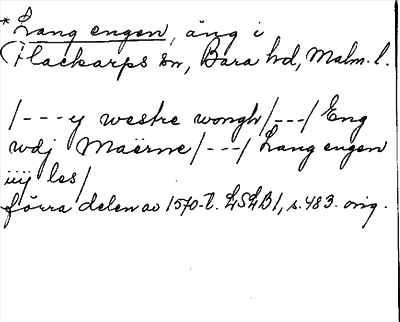 *Lang engen, äng i
Flackarps sn, Bara hd, Malm. l.
/---y westre wongh/---/ Eng
wdj Maërne/---/ Lang engen
iiij les/
förra delen av 1570-t. LSLB 1, s. 483. orig.